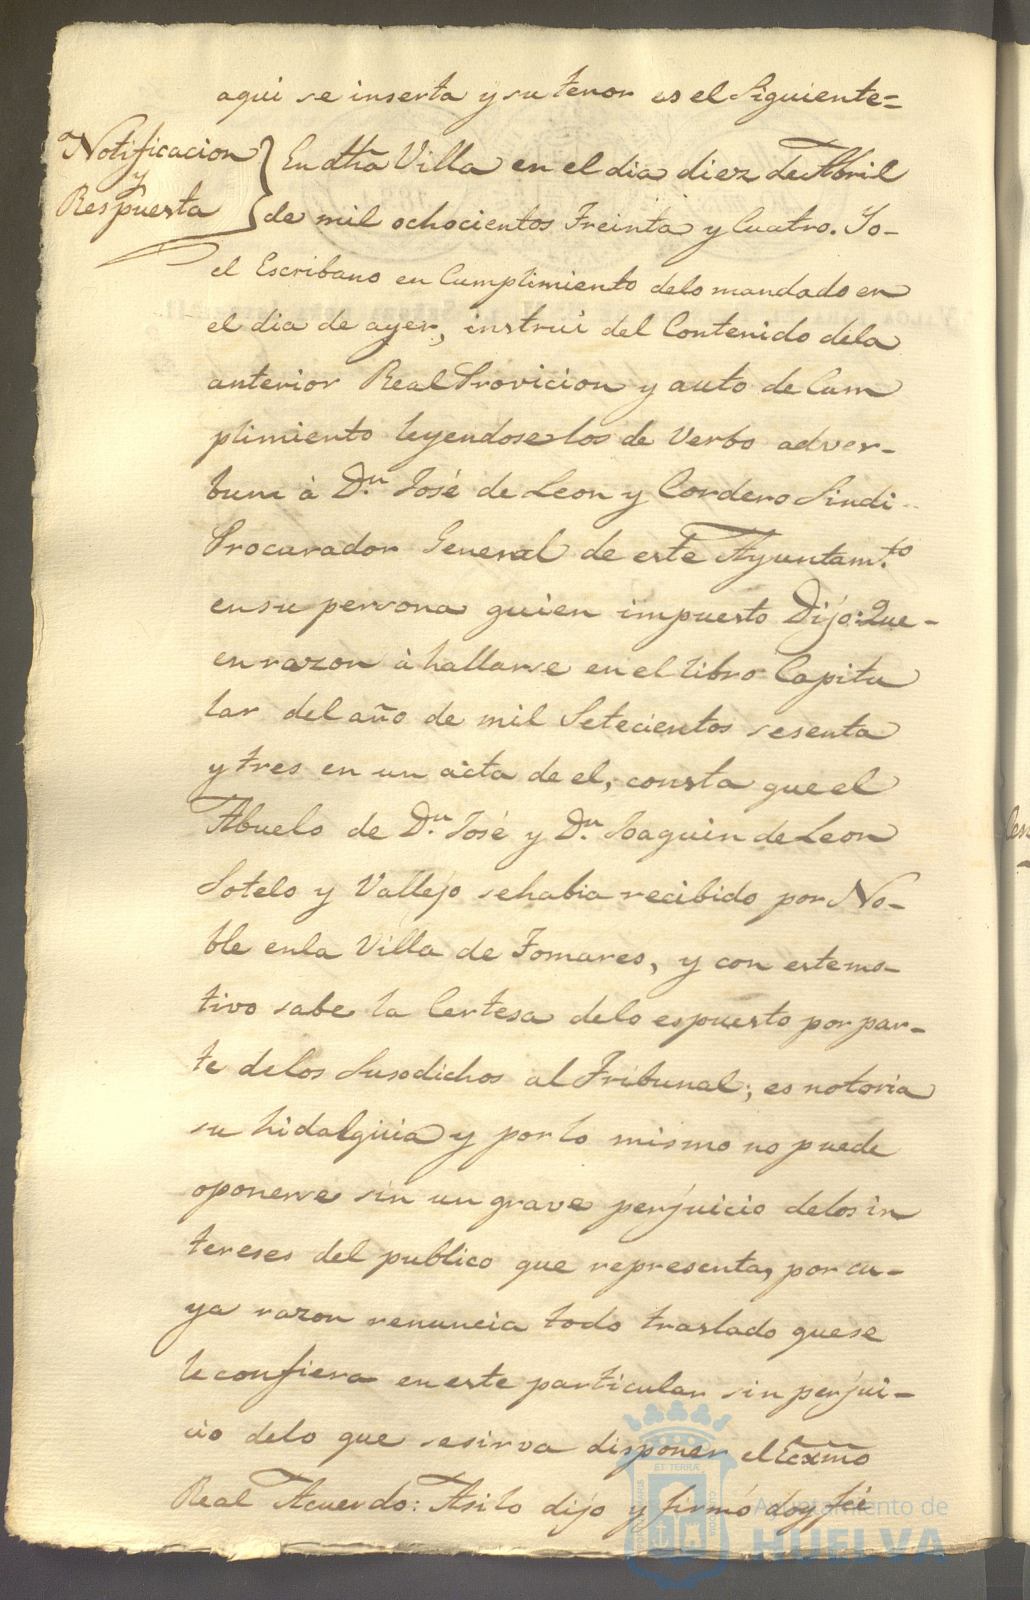 aqui se inserta y su tenor es el Siguiente=
Notificacion
y
Respuesta
En dtha Villa en el dia diez de Abril
de mil ochocientos Treinta y Cuatro. Yo-
el Escribano en Cumplimiento delo mandado en
el dia de ayer, instrui del Contenido dela
anterior Real Provicion y auto de Cum
plimiento leyendoselos de Verbo adver-
bum à Dn. José de Leon y Cordero Sindi-
Procurador General de este Ayuntam.to
en su persona quien impuesto Dijo: Que-
en razon à hallarse en el libro Capitu
lar del año de mil Setecientos sesenta
y tres en un acta de el, consta que el
Abuelo de Dn. José y Dn. Joaquin de Leon
Sotelo y Vallejo sehabia recibido por No-
ble enla Villa de Tomares, y con estemo-
tivo sabe la Certesa delo espuesto por par-
te delos Susodichos al Tribunal; es notoria
su hidalguia y por lo mismo no puede
oponerse sin un grave perjuicio delos in
tereses del publico que representa, por cu-
ya razon renuncia todo traslado quese
le confiera en este particular sin perjui-
cio delo que sesirva disponer el Ecxmo
Real Acuerdo: Asi lo dijo y firmó doy fé
Ayuntamiento de
HUELVA